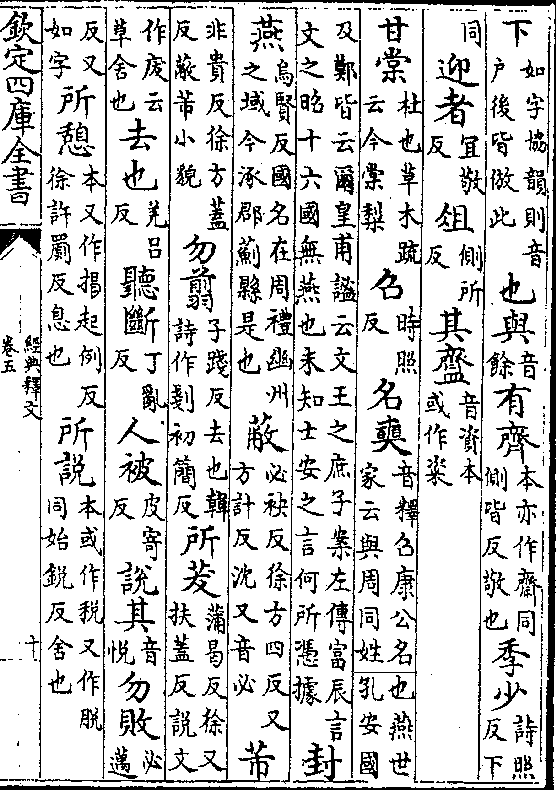 下如字協韻則音户後皆倣此也與音餘有齊本亦作齋同側皆反敬也季少詩照反下
同迎者宜敬反俎側所反其齍音資本或作粢
甘棠杜也草木疏云今棠棃召時照反名奭音釋召康公名也燕世家云與周同姓孔安國
及鄭皆云爾皇甫謐云文王之庶子案左傳富辰言文之昭十六國無燕也未知士安之言何所憑據封
燕烏賢反國名在周禮幽州之域今涿郡薊縣是也蔽必袂反徐方四反又方計反沈又音必芾
非貴反徐方蓋反蔽芾小貌勿翦子踐反去也韓詩作剗初簡反所茇蒲曷反徐又扶蓋反説文
作废云草舍也去也羌吕反聽斷丁亂反人被皮寄反說其音悦勿敗必邁
反又如字所憩本又作揭起例反徐許罽反息也所説本或作税又作脱同始鋭反舍也
欽定四庫全書
經典釋文
卷五
十